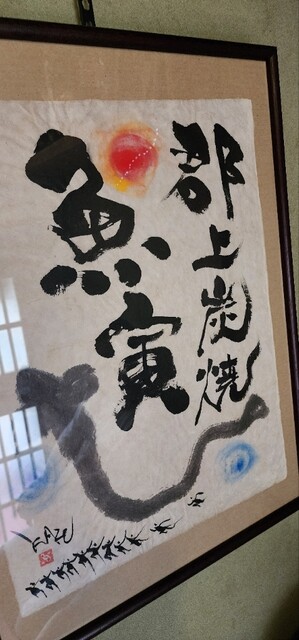 郡上炭焼
魚寅
KAZU